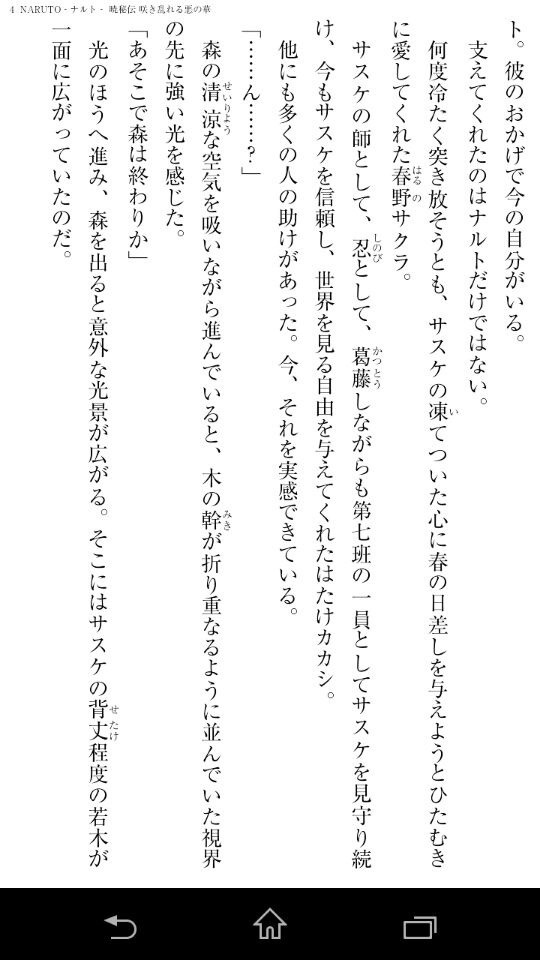 4 NARUTO‐ナルト‐ 暁秘伝 咲き乱れる悪の華
ト。彼のおかげで今の自分がいる。
支えてくれたのはナルトだけではない。
何度冷たく突き放そうとも、サスケの凍てついた心に春の日差しを与えようとひたむき
に愛してくれた春野サクラ。
サスケの師として、忍として、葛藤しながらも第七班の一員としてサスケを見守り続
け、今もサスケを信頼し、世界を見る自由を与えてくれたはたけカカシ。
他にも多くの人の助けがあった。今、それを実感できている。
「……ん……？」
森の清涼な空気を吸いながら進んでいると、木の幹が折り重なるように並んでいた視界
の先に強い光を感じた。
「あそこで森は終わりか」
光のほうへ進み、森を出ると意外な光景が広がる。そこにはサスケの背丈程度の若木が
一面に広がっていたのだ。